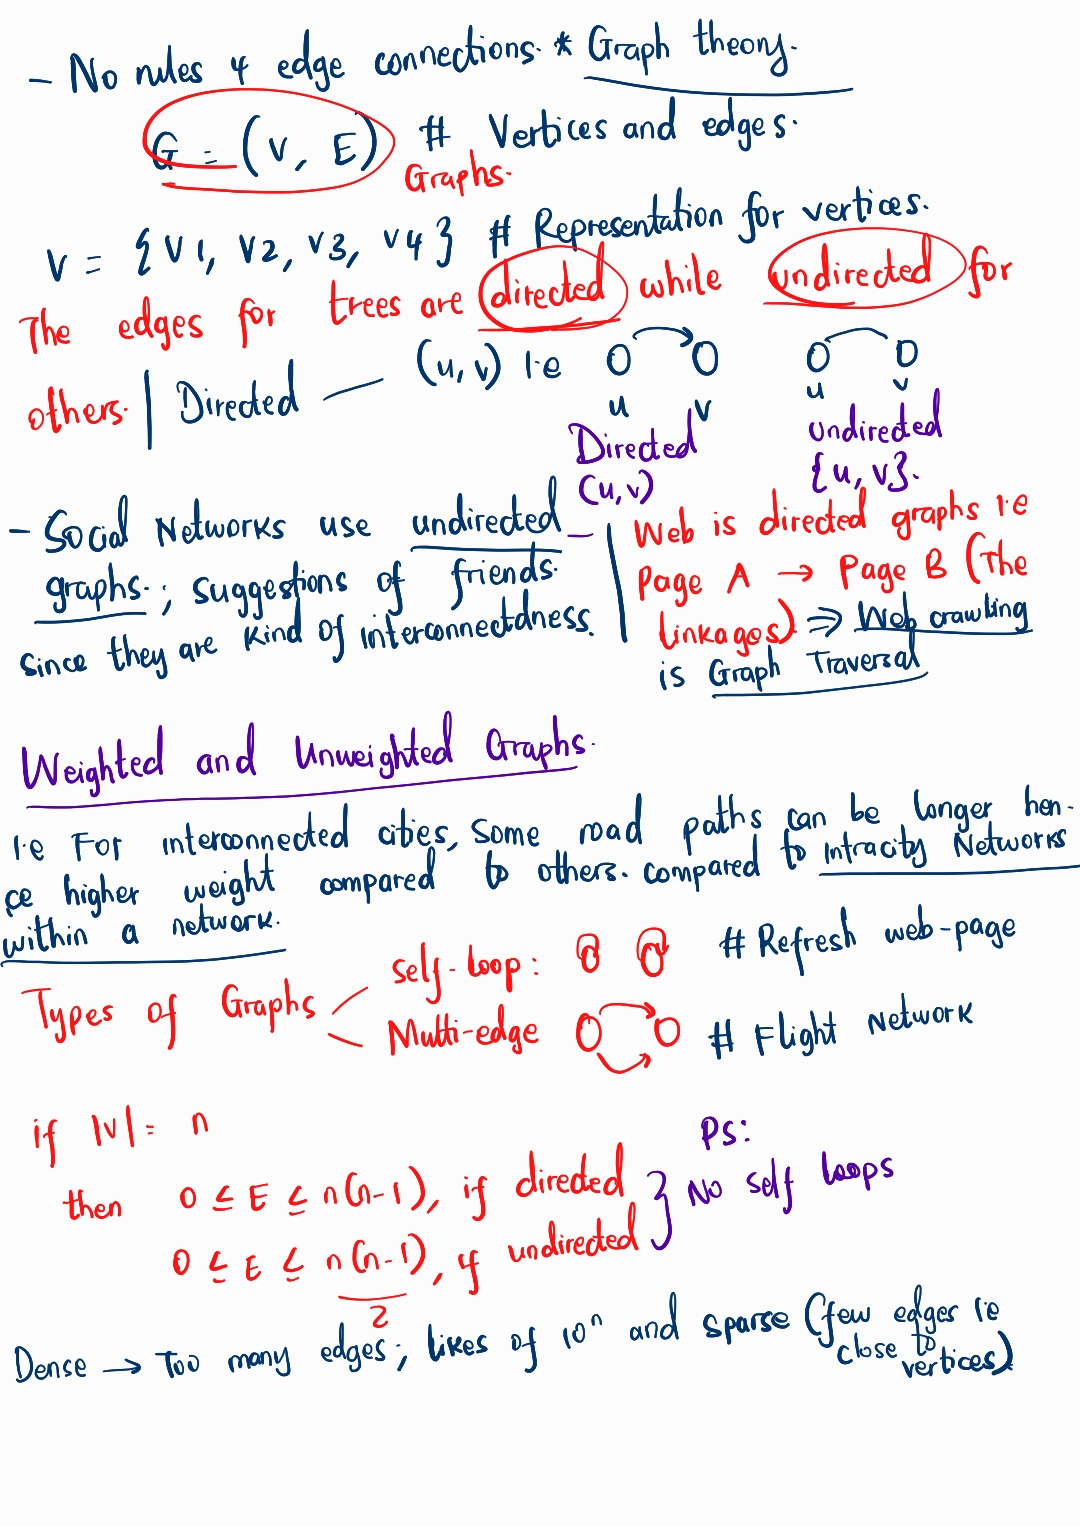 - No rules 4 edge connections. * Graph theory.
G = (V, E) # Vertices and edges.
Graphs.
V = {V1, V2, V3, V4} # Representation for vertices.
The edges for trees are directed while undirected for
others. | Directed — (u, v) i.e
u v u v
Directed undirected
(u, v) {u, v}.
- Social Networks use undirected -
graphs.; suggestions of friends.
since they are kind of interconnectdness.
Web is directed graphs i.e
Page A → Page B (The
linkages) ⇒ Web crawling
is Graph Traversal
Weighted and Unweighted Graphs.
i.e For interconnected cities, some road paths can be longer hen-
ce higher weight compared to others. compared to intracity Networks
within a network.
Types of Graphs
Self-loop: # Refresh web-page
Multi-edge # Flight Network
if |V| = n
then 0 ≤ E ≤ n(n-1), if directed
0 ≤ E ≤ n(n-1)/2, if undirected
} PS:
No self loops
Dense → Too many edges; likes of 10ⁿ and sparse (few edges ie
close to
vertices)